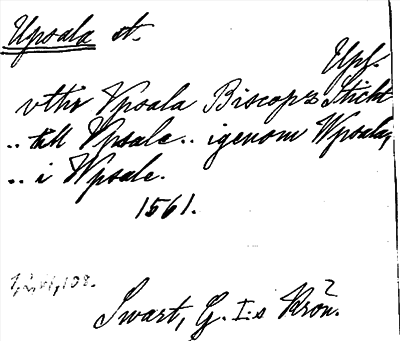 Upsala st.
Upl.
vthr Vpsala Biscopz Sticht
.. till Vpsale.. igenom Wpsala,
.. i Wpsale.
1561.
1,2,VI,108.
Swart, G. I:s Krön.